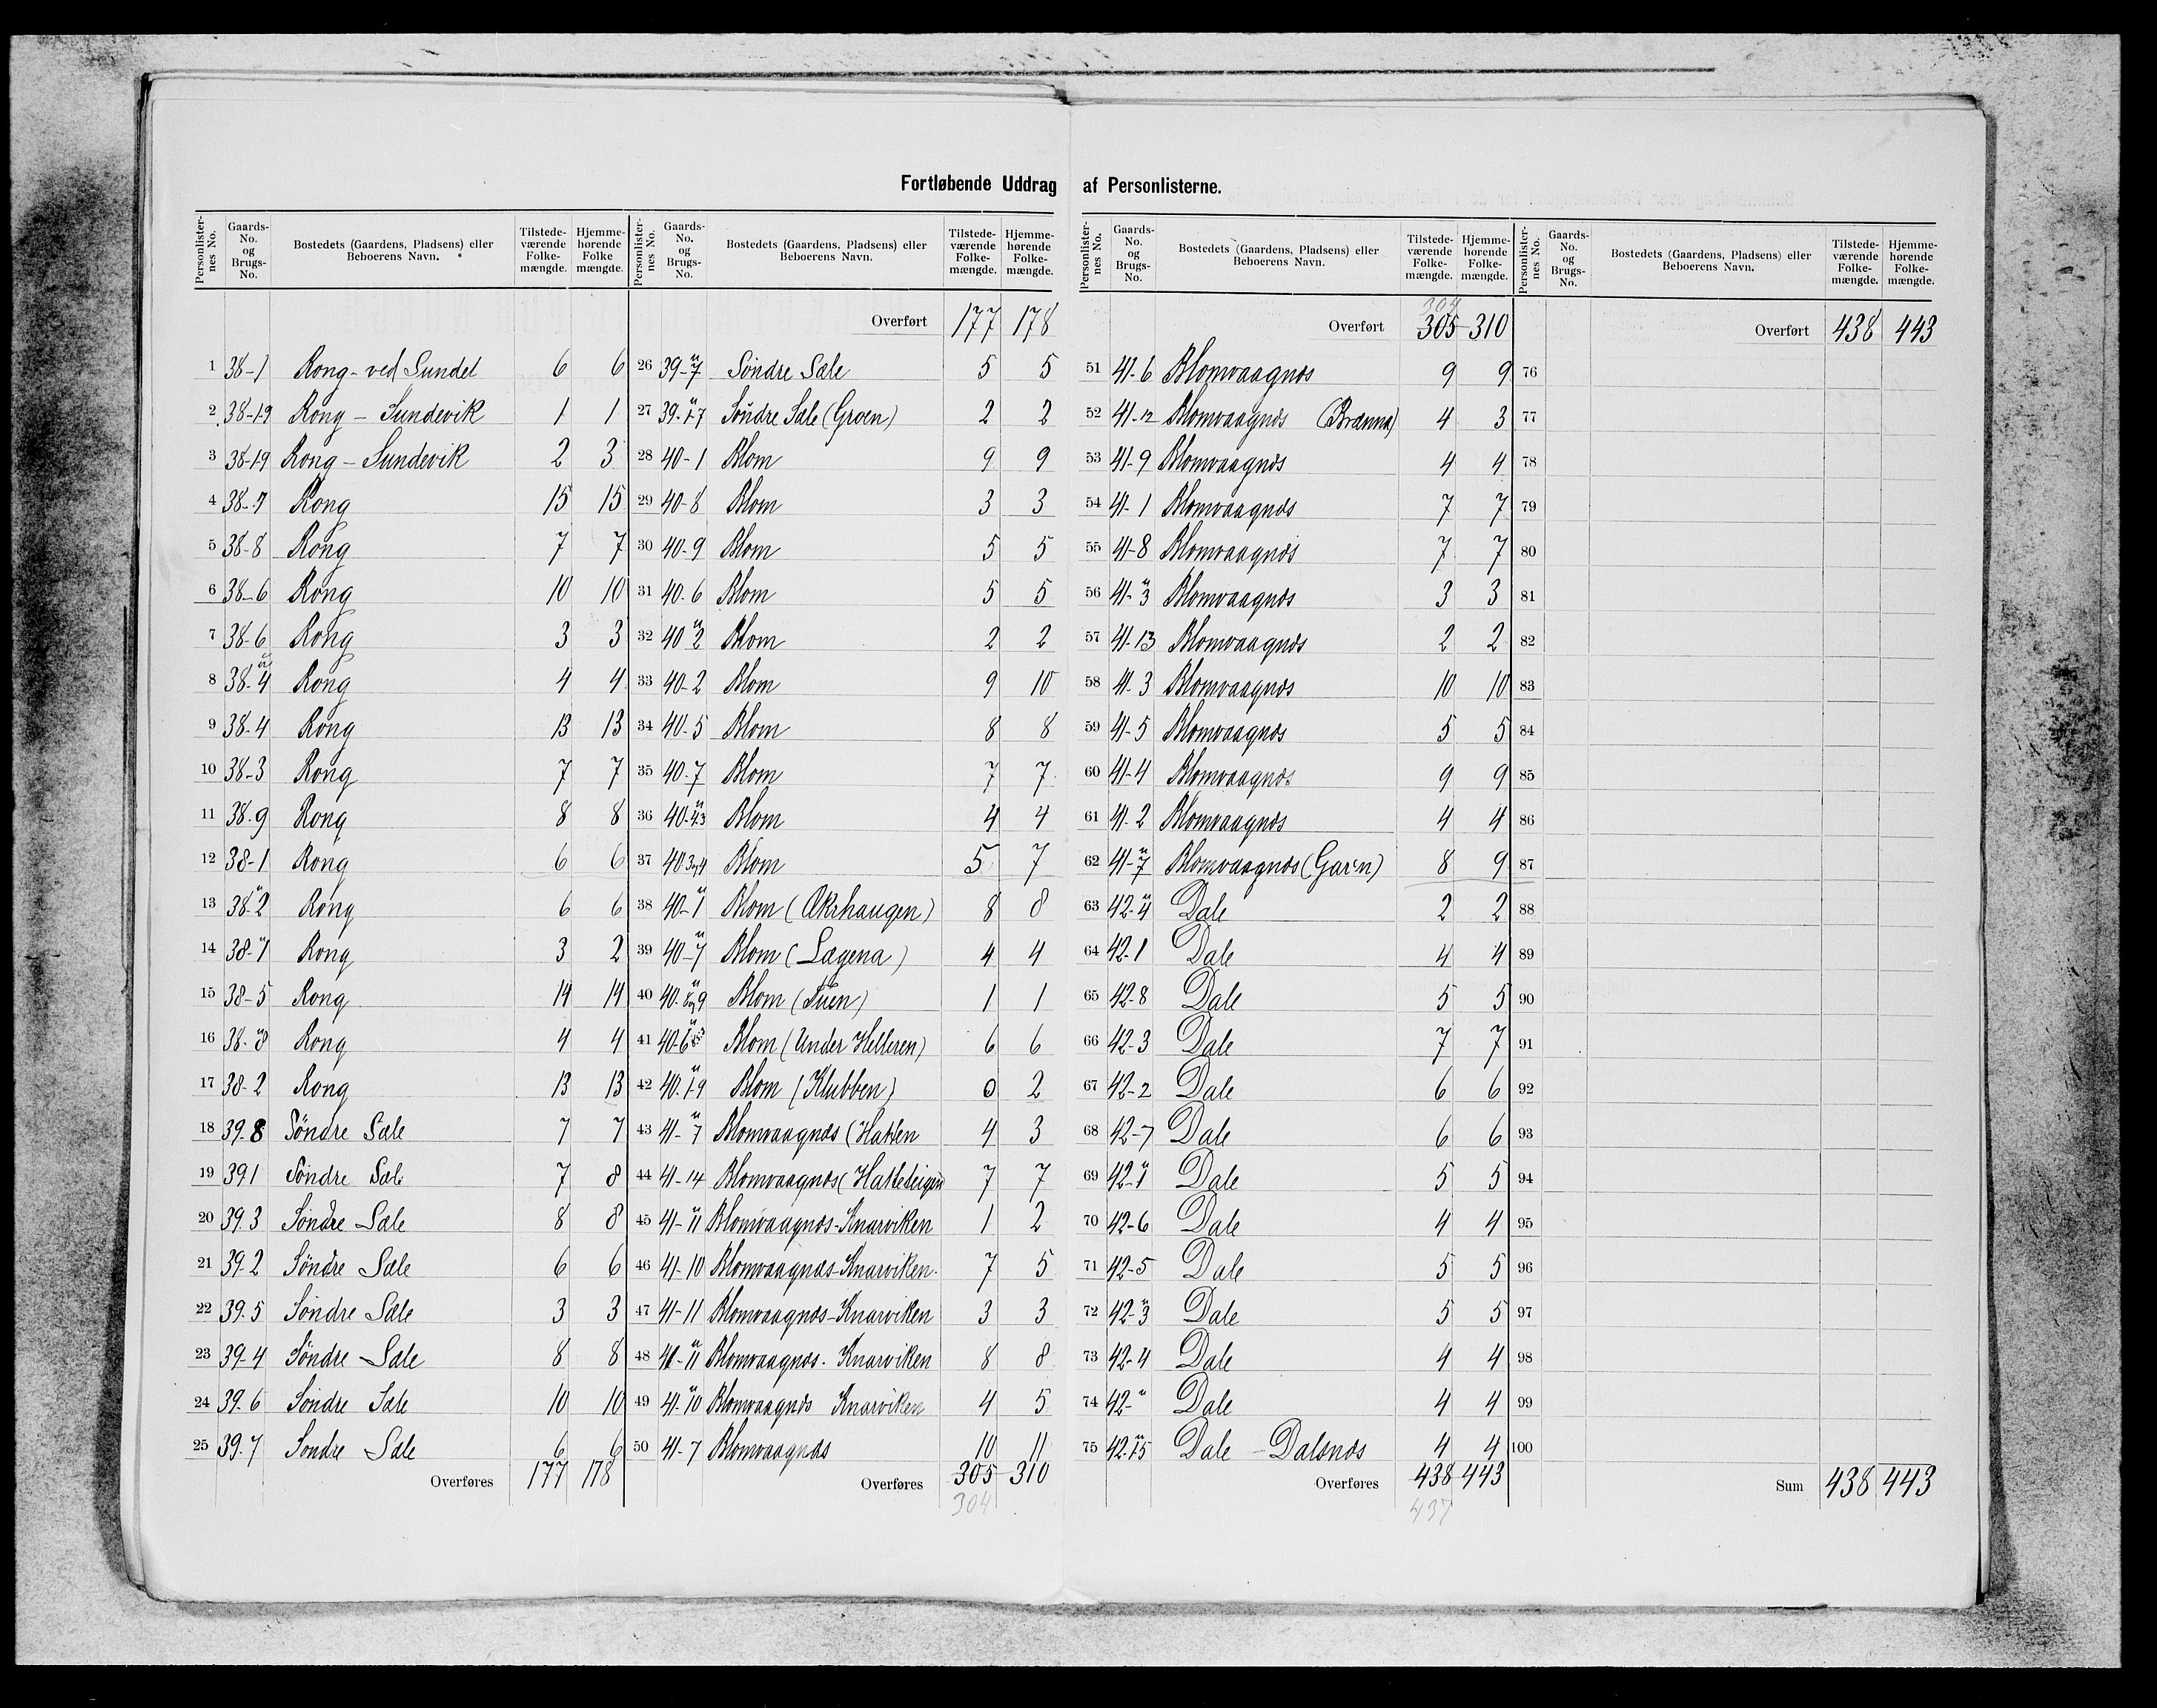 Fortløbende Uddrag af Personlisterne.
Personlister-nes No. Gaards-No. og Brugs-No. Bostedets (Gaardens, Pladsens) eller Beboerens Navn. Tilstede-værende Folke-mængde. Hjemme-hørende Folke mængde.
1 38-1 Rong - ved Sundet 6 6
2 38-19 Rong - Sundevik 1 1
3 38-19 Rong - Sundevik 2 3
4 38-7 Rong 15 15
5 38-8 Rong 7 7
6 38-6 Rong 10 10
7 38-6 Rong 3 3
8 38-4 Rong 4 4
9 38-4 Rong 13 13
10 38-3 Rong 7 7
11 38-9 Rong 8 8
12 38-1 Rong 6 6
13 38-2 Rong 6 6
14 38-1 Rong 3 2
15 38-5 Rong 14 14
16 38-8 Rong 4 4
17 38-2 Rong 13 13
18 39.8 Söndre Sæle 7 7
19 39.1 Söndre Sæle 7 8
20 39.3 Söndre Sæle 8 8
21 39.2 Söndre Sæle 6 6
22 39.5 Söndre Sæle 3 3
23 39-4 Söndre Sæle 8 8
24 39-6 Söndre Sæle 10 10
25 39.7 Söndre Sæle 6 6
Overføres 177 178
Personlister-nes No. Gaards-No. og Brugs-No. Bostedets (Gaardens, Pladsens) eller Beboerens Navn. Tilstede-værende Folke-mængde. Hjemme-hørende Folke-mængde.
Overført 177 178
26 39-"7 Söndre Sæle 5 5
27 39-"17 Söndre Sæle (Groen) 2 2
28 40-1 Blom 9 9
29 40-8 Blom 3 3
30 40-9 Blom 5 5
31 40-6 Blom 5 5
32 40"2 Blom 2 2
33 40-2 Blom 9 10
34 40-5 Blom 8 8
35 40-7 Blom 7 7
36 Blom 4 4
37 Blom 5 7
38 40-"1 Blom (Økrhaugen) 8 8
39 40-"7 Blom (Lægena) 4 4
40 Blom (Tuen) 1 1
41 Blom (Under Helleren) 6 6
42 40-"19 Blom (Klubben) 0 2
43 41-"7 Blomvaagnæs (Hatten 4 3
44 41-14 Blomvaagnæs (Hatteteigen 7 7
45 41-"11 Blomvaagnæs-Knarviken 1 2
46 41-10 Blomvaagnæs-Knarviken. 7 5
47 41-11 Blomvaagnæs-Knarviken 3 3
48 41-"11 Blomvaagnæs. Knarviken 8 8
49 41-"10 Blomvaagnæs Knarviken 4 5
50 41-7 Blomvaagnæs 10 11
Overføres 305 310
304
Personlister-nes No. Gaards-No. og Brugs-No. Bostedets (Gaardens, Pladsens) eller Beboerens Navn. Tilstede-værende Folke-mængde. Hjemme-hørende Folke-mængde.
304
Overført 305 310
51 41-6 Blomvaagnæs 9 9
52 41-12 Blomvaagnæs (Brænna) 4 3
53 41-9 Blomvaagnæs 4 4
54 41-1 Blomvaagnæs 7 7
55 41-8 Blomvaagnæs 7 7
56 41-"3 Blomvaagnæs 3 3
57 41-13 Blomvaagnæs 2 2
58 41-3 Blomvaagnæs 10 10
59 41-5 Blomvaagnæs 5 5
60 41-4 Blomvaagnæs 9 9
61 41-2 Blomvaagnæs 4 4
62 41-"7 Blomvaagnæs (Gar'n) 8 9
63 42-"4 Dale 2 2
64 42-1 Dale 4 4
65 42-8 Dale 5 5
66 42-3 Dale 7 7
67 42-2 Dale 6 6
68 42-7 Dale 6 6
69 42-"1 Dale 5 5
70 42-6 Dale 4 4
71 42-5 Dale 5 5
72 42-"3 Dale 5 5
73 42-4 Dale 4 4
74 42-" Dale 4 4
75 42-"15 Dale - Dalsnæs 4 4
Overføres 438 443
437
Personlister-nes No. Gaards-No. og Brugs-No. Bostedets (Gaardens, Pladsens) eller Beboerens Navn. Tilstede-værende Folke-mængde. Hjemme-hørende Folke-mængde.
Overført 438 443
76
77
78
79
80
81
82
83
84
85
86
87
88
89
90
91
92
93
94
95
96
97
98
99
100
Sum 438 443